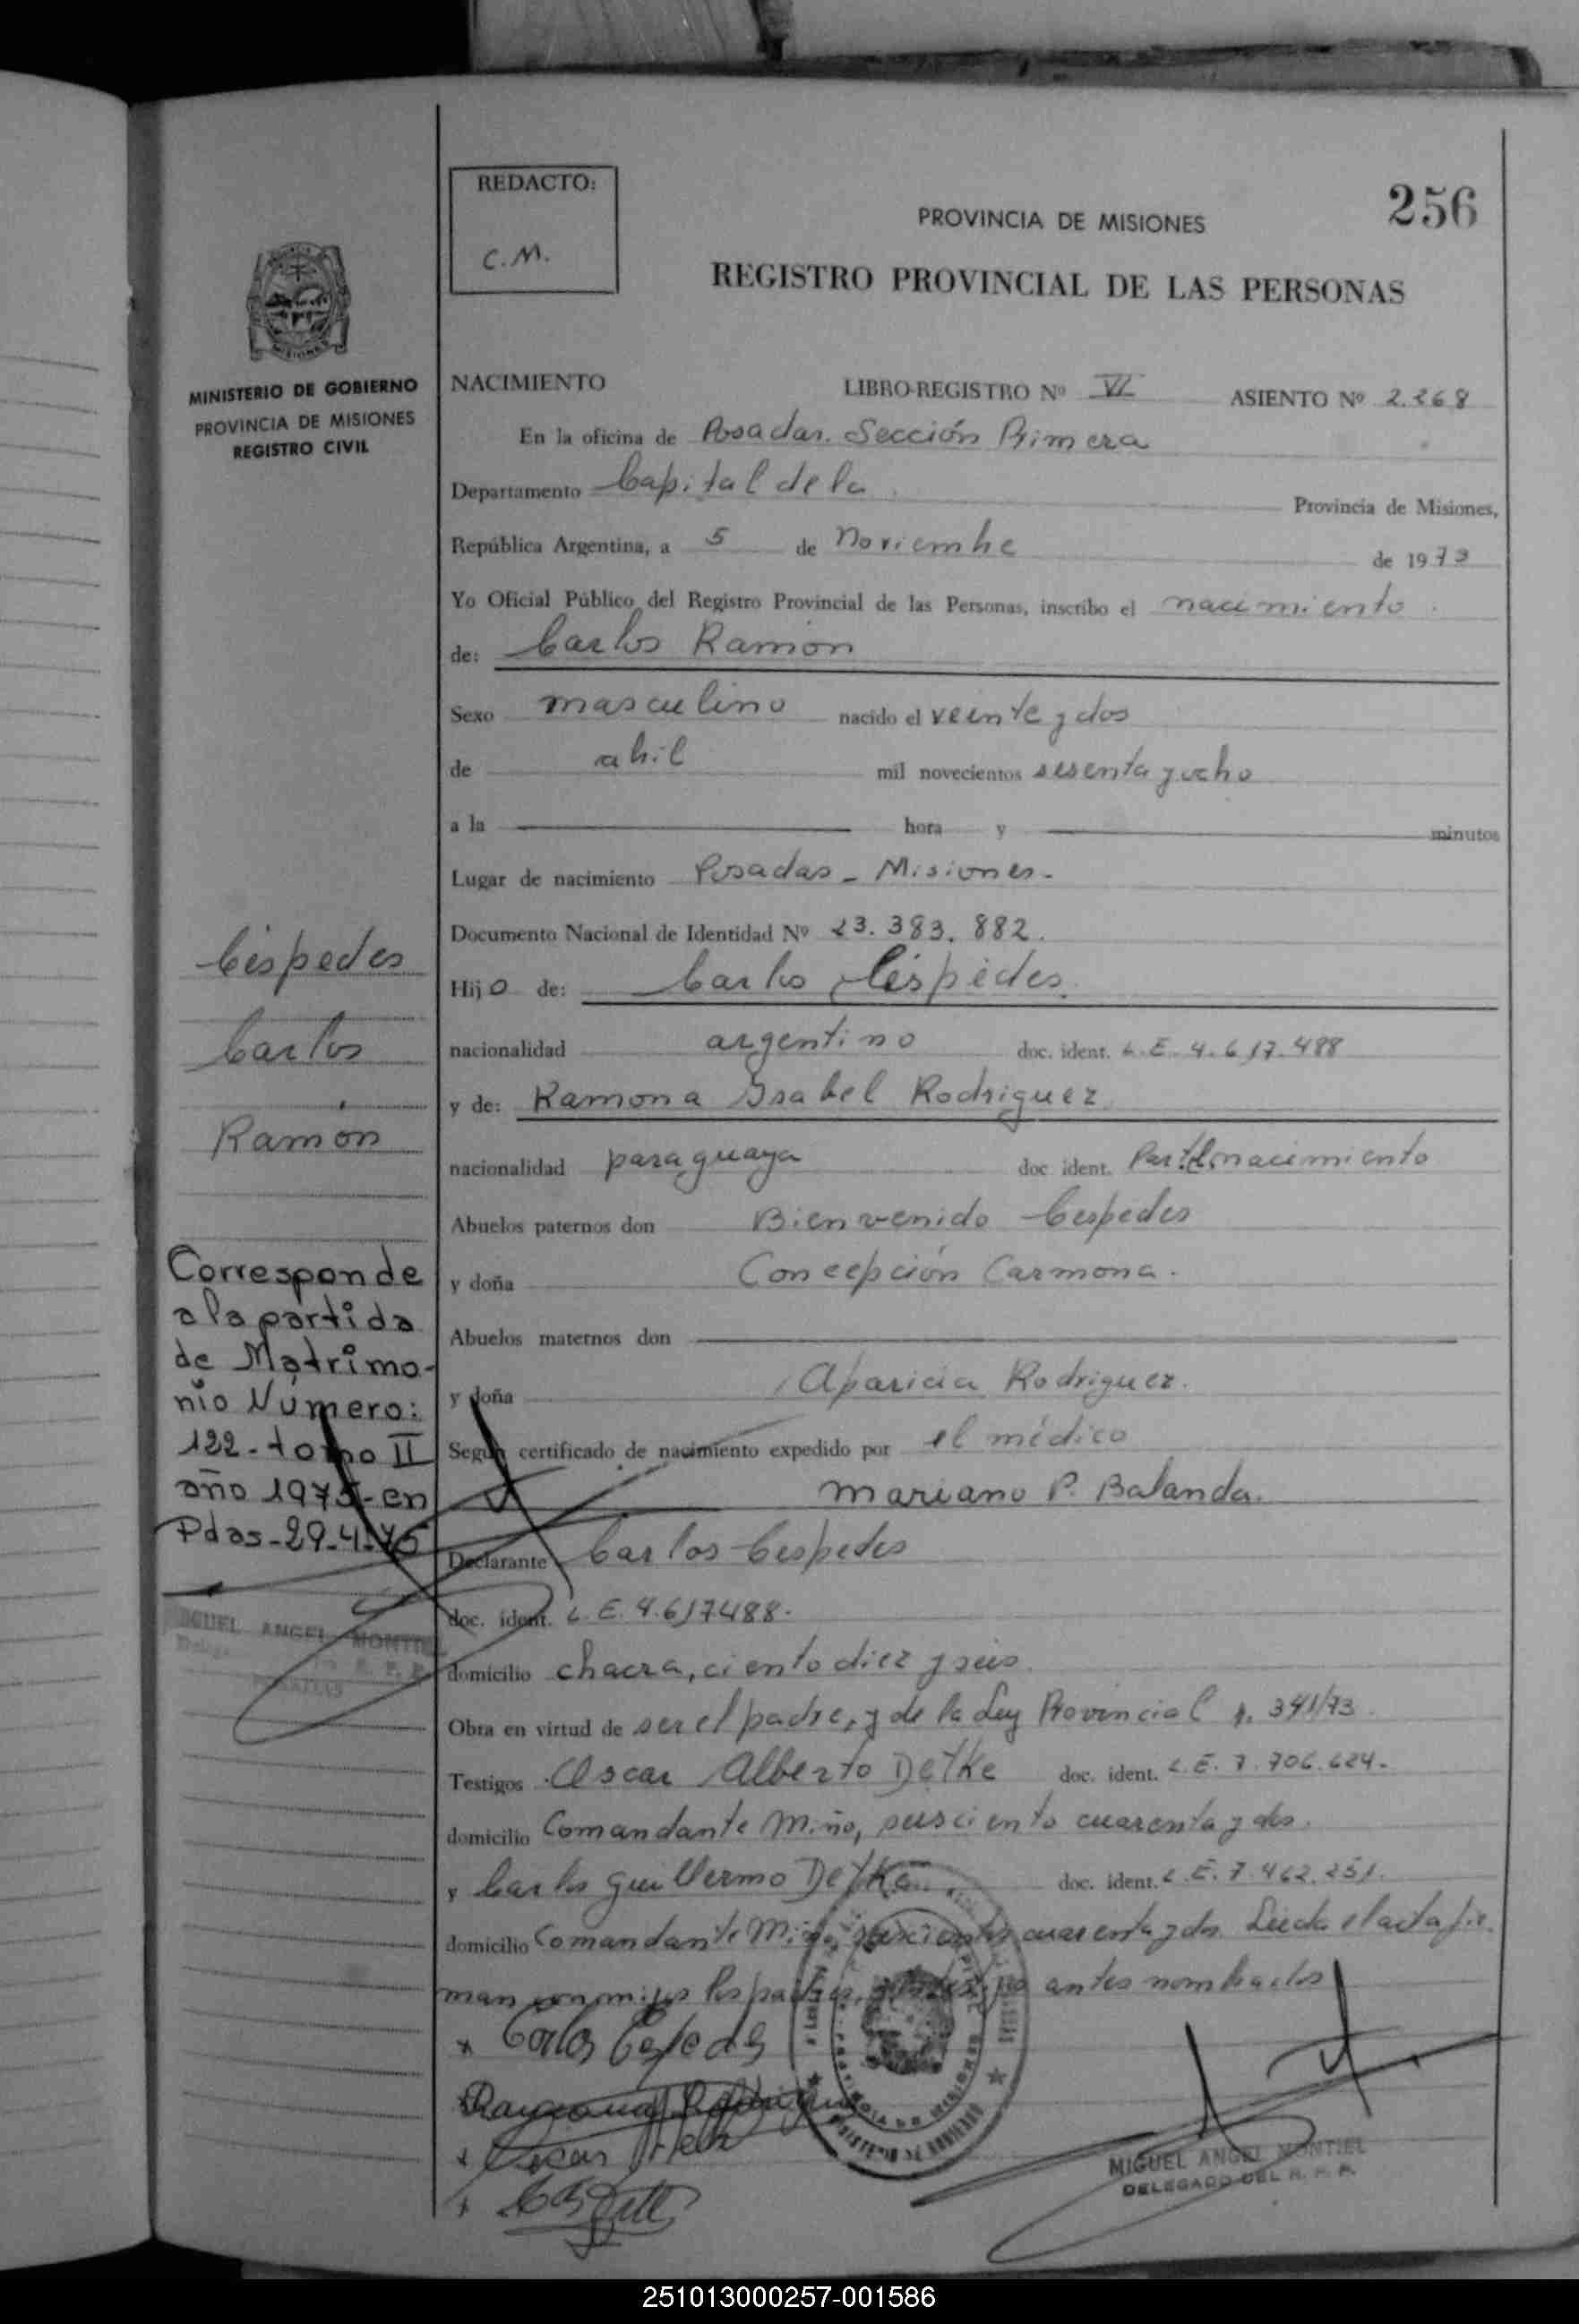 REDACTO:
C.M.
256
PROVINCIA DE MISIONES
REGISTRO PROVINCIAL DE LAS PERSONAS
MINISTERIO DE GOBIERNO
PROVINCIA DE MISIONES
REGISTRO CIVIL
NACIMIENTO LIBRO-REGISTRO Nº VI ASIENTO Nº 2.268
En la oficina de Posadas. Sección Primera
Departamento Capital de la Provincia de Misiones,
República Argentina, a 5 de Noviembre de 1973
Yo Oficial Público del Registro Provincial de las Personas, inscribo el nacimiento
de: Carlos Ramón
Sexo masculino nacido el veinte y dos
de abril mil novecientos sesenta y ocho
a la hora y minutos
Lugar de nacimiento Posadas - Misiones.
Documento Nacional de Identidad Nº 23.383.882.
Hijo de: Carlos Céspedes
nacionalidad argentino doc. ident. L.E. 4.617.488
y de: Ramona Isabel Rodriguez
nacionalidad paraguaya doc. ident. Part. nacimiento
Abuelos paternos don Bienvenido Cespedes
y doña Concepción Carmona.
Abuelos maternos don
y doña Aparicia Rodriguez.
Según certificado de nacimiento expedido por el médico
Mariano P. Balanda.
Declarante Carlos Cespedes
doc. ident. L.E. 4.617488.
domicilio chacra, ciento diez y seis
Obra en virtud de ser el padre, y de la Ley Provincial n. 341/73.
Testigos Oscar Alberto Detke doc. ident. L.E. 7.706.624.
domicilio Comandante Miño, seisciento cuarenta y dos.
y Carlos Guillermo Detke doc. ident. L.E. 7.462.251.
domicilio Comandante Miño, seiscientos cuarenta y dos. Leida el acta fir
man conmigo los padres, antes nombrados
Carlos Cespedes
Céspedes
Carlos
Ramón
Corresponde
a la partida
de Matrimo-
nio Número:
122-tomo II
año 1975-en
Pdas-29-4-75
MIGUEL ANGEL MONTIEL
MIGUEL ANGEL MONTIEL
DELEGADO DEL R. P. P.
251013000257-001586